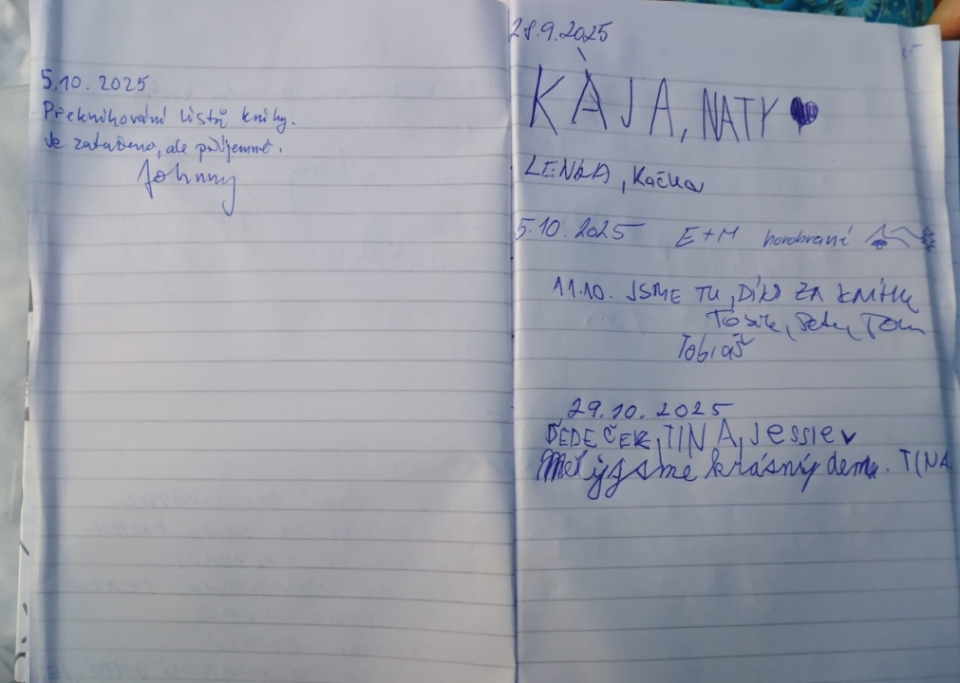 5.10.2025
Překnihování listů knihy.
Je zataženo, ale příjemně.
Johnny
28.9.2025
KÁJA, NATY
LENKA, Kačka
5.10.2025 E+M horobraní
11.10. JSME TU, DÍKY ZA KNÍŽKU
Tobiáš
29.10.2025
DĚDEČEK, TINA, Jessie
Měly jsme krásný den. TINA